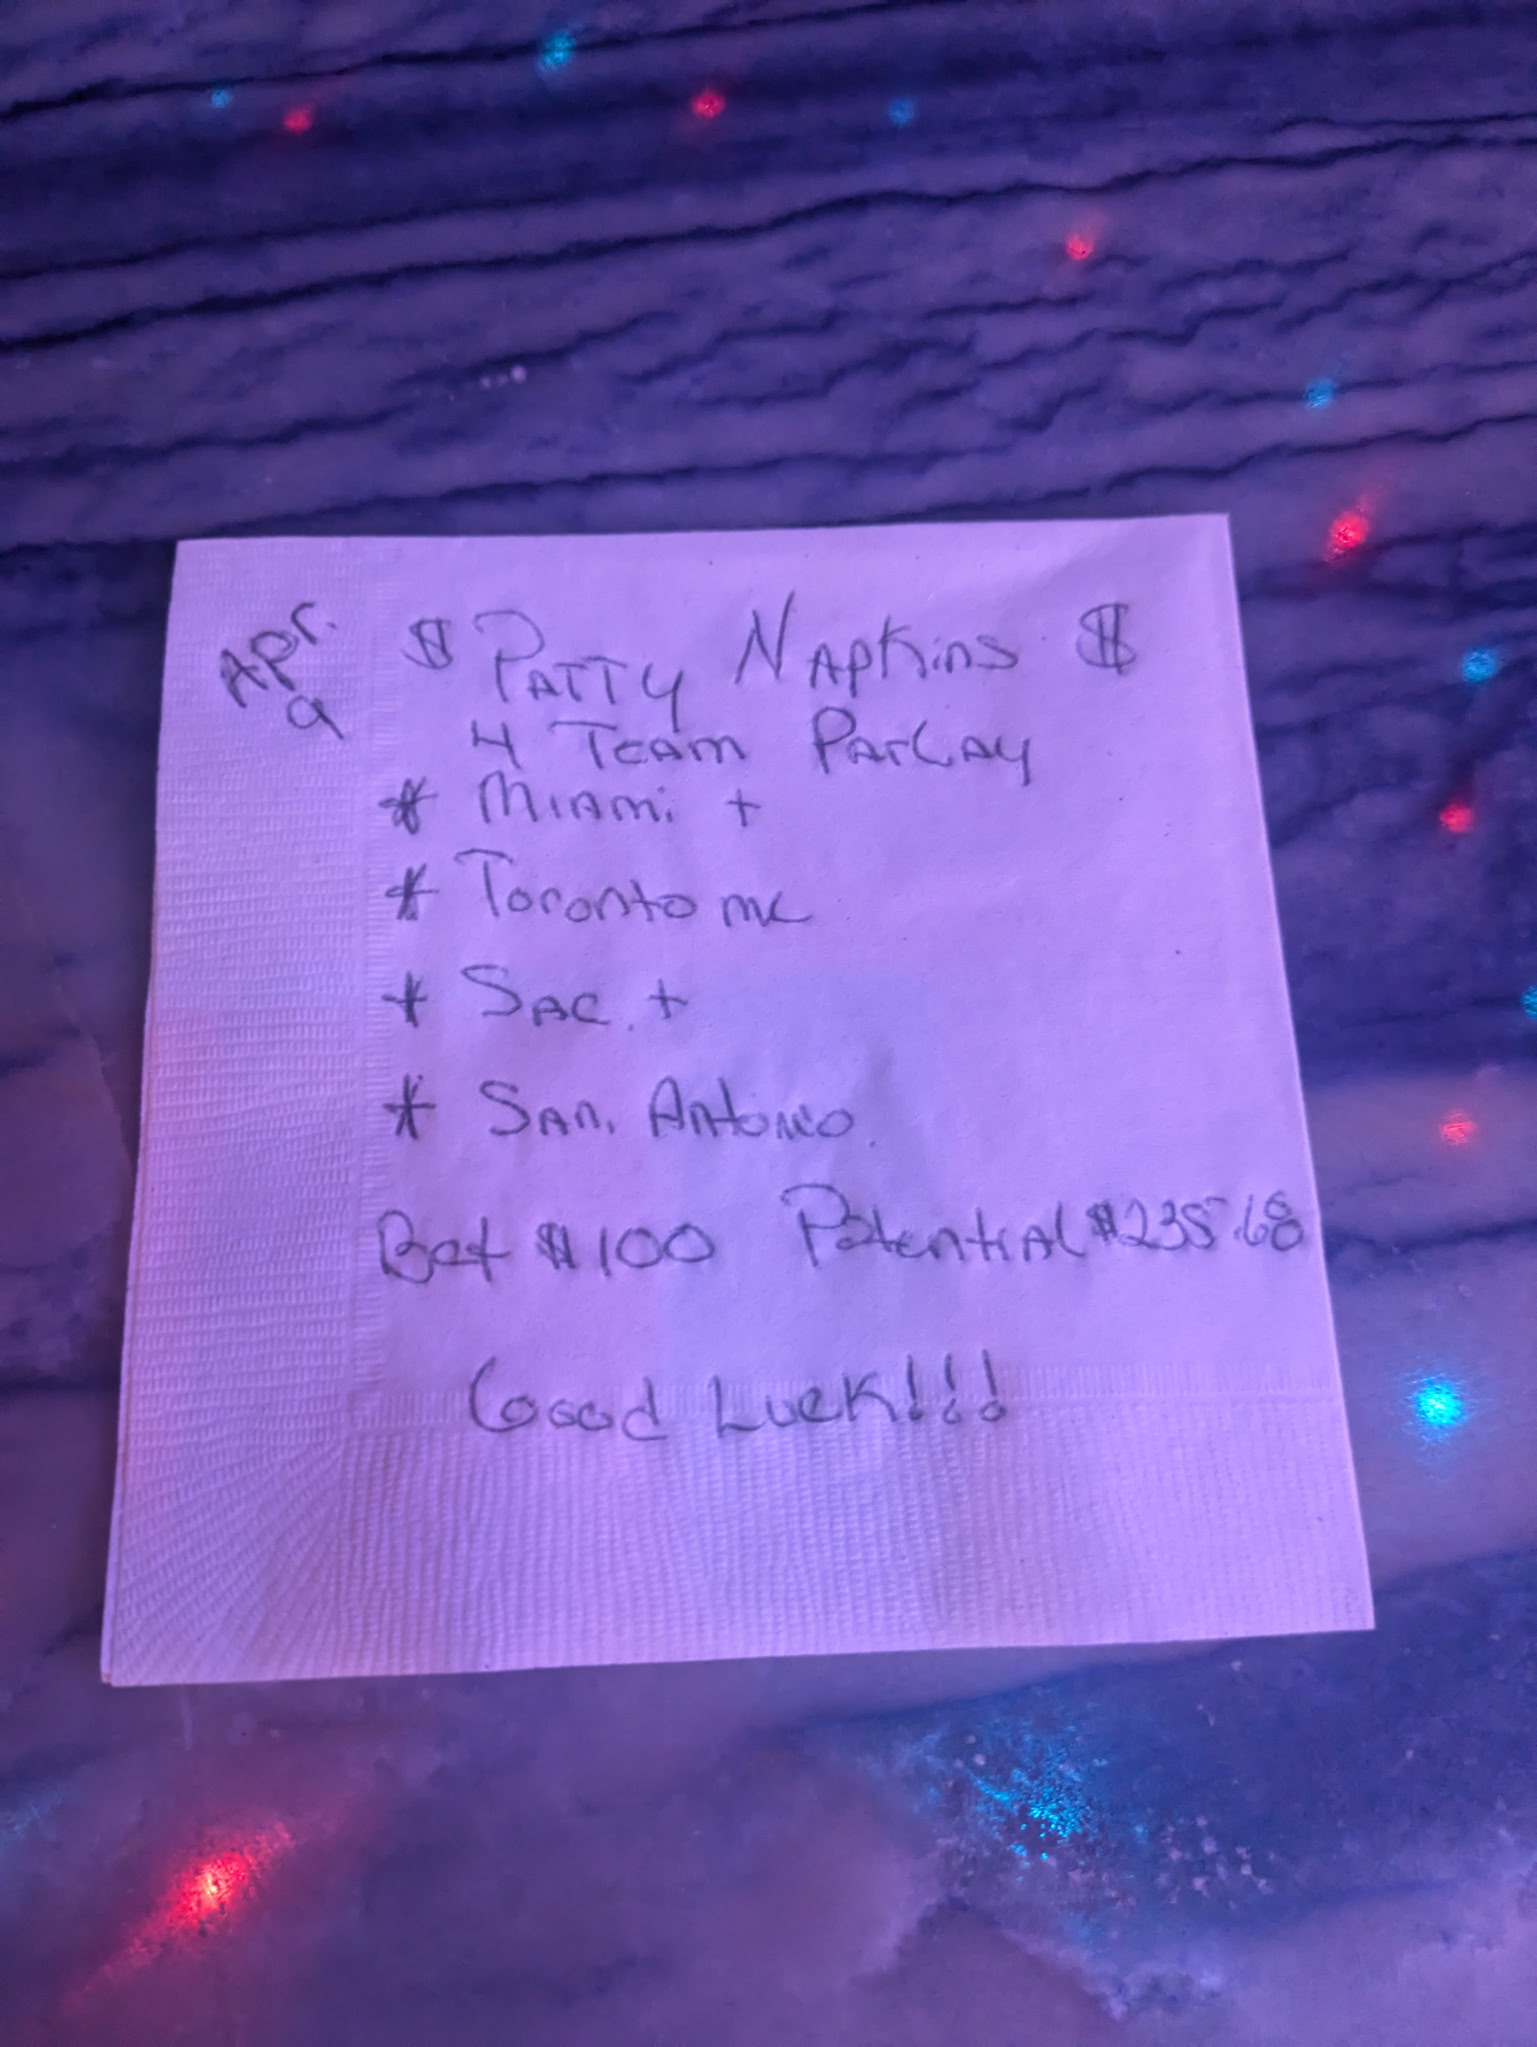 Apr.
9
$ Patty Napkins $
4 Team Parlay
* Miami +
* Toronto ML
* Sac. +
* San. Antonio.
Bet $100 Potential $235.68
Good Luck!!!